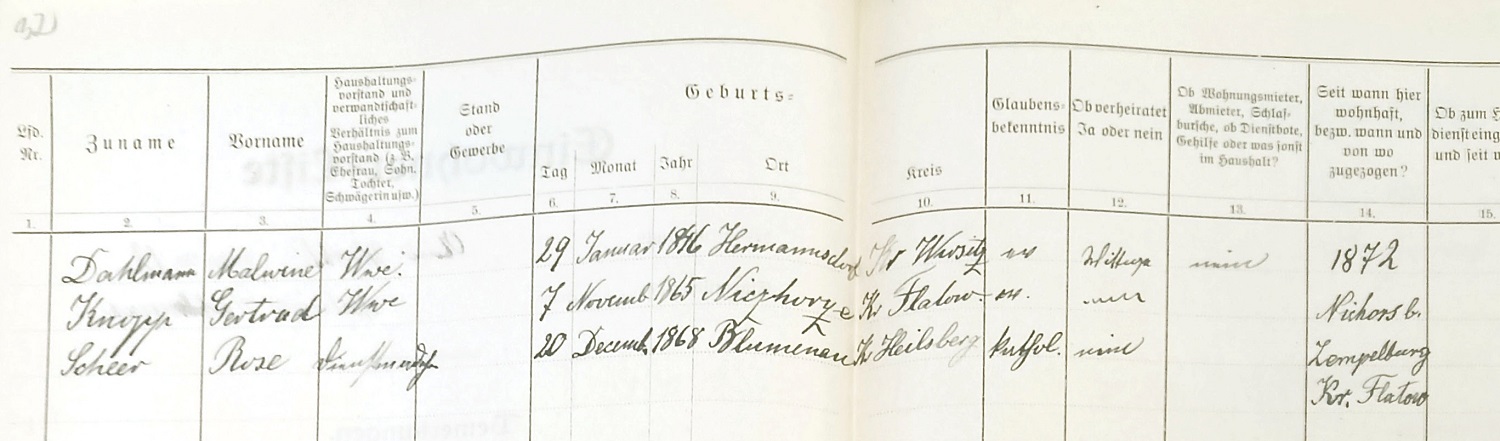 Lfd. Nr.
Zuname
Vorname
Haushaltungs-
vorstand und
verwandtschaft-
liches
Verhältnis zum
Haushaltungs-
vorstand (z. B.
Ehefrau, Sohn,
Tochter,
Schwägerin usw.)
Stand
oder
Gewerbe
Geburts-
Tag
Monat
Jahr
Ort
Kreis
Glaubens-
bekenntnis
Ob verheiratet
Ja oder nein
Ob Wohnungsmieter,
Abmieter, Schlaf-
bursche, ob Dienstbote,
Gehilfe oder was sonst
im Haushalt?
Seit wann hier
wohnhaft,
bezw. wann und
von wo
zugezogen?
Ob zum
und seit
1. 2. 3. 4. 5. 6. 7. 8. 9. 10. 11. 12. 13. 14. 15.
Dahlmann Malwine Wwe. 29 Januar 1846 Hermannsdorf Kr Wirsitz ev Wittwe nein 1872
Knopp Gertrud Wwe 7 Novemb 1865 Kr Flatow ev. nein
Scheer Rose Dienstmädch 20 Decemb. 1868 Blumenau Kr Heilsberg kathol. nein Zempelburg
Kr. Flatow